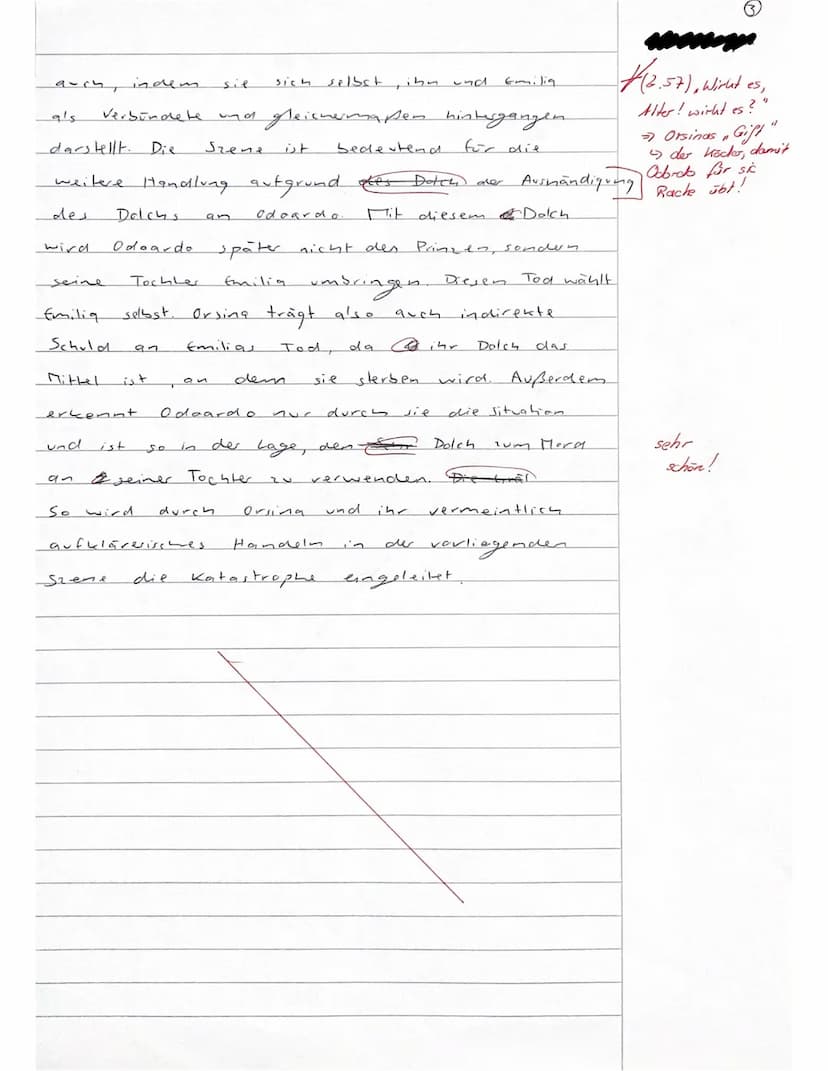 3
auch, indem sie sich selbst, ihn und Emilia
als Verbündete und gleichermaßen hintergangen
darstellt. Die Szene ist bedeutend für die
weitere Handlung aufgrund des Dolch der Aushändigung
des Dolchs an Odoardo. Mit diesem Dolch
wird Odoardo später nicht den Prinzen, sondern
seine Tochter Emilia umbringen. Diesen Tod wählt
Emilia selbst. Orsina trägt also auch indirekte
Schuld an Emilias Tod, da ihr Dolch das
Mittel ist, an dem sie sterben wird. Außerdem
erkennt Odoardo nur durch sie die Situation
und ist so in der Lage, den Dolch zum Mord
an seiner Tochter zu verwenden.
So wird durch Orsina und ihr vermeintlich
aufklärerisches Handeln in der vorliegenden
Szene die Katastrophe eingeleitet.
(Z.57) "Wirkt es,
Alter! wirkt es?"
=> Orsinas "Gift"
↳ der Köder, damit
für sie
Rache übt!
sehr
schön!